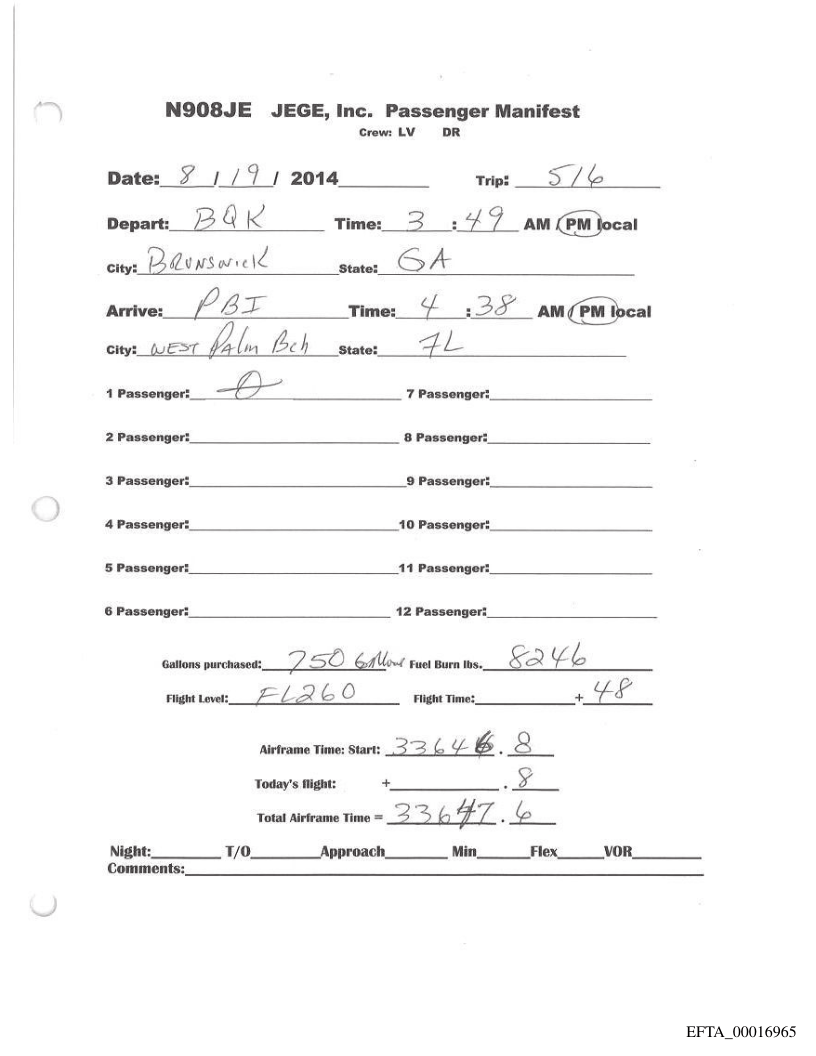 N908JE JEGE, Inc. Passenger Manifest
Crew: LV DR
Date: 8 / 19 / 2014 Trip: 516
Depart: BQK Time: 3 : 49 AM / PM local
City: Brunswick State: GA
Arrive: PBI Time: 4 : 38 AM / PM local
City: West Palm Bch State: FL
1 Passenger: 0 7 Passenger:
2 Passenger: 8 Passenger:
3 Passenger: 9 Passenger:
4 Passenger: 10 Passenger:
5 Passenger: 11 Passenger:
6 Passenger: 12 Passenger:
Gallons purchased: 750 Gallons Fuel Burn lbs. 8246
Flight Level: FL260 Flight Time: + 48
Airframe Time: Start: 33646 . 8
Today's flight: + . 8
Total Airframe Time = 33647 . 6
Night: T/O Approach Min Flex VOR
Comments:
EFTA_00016965